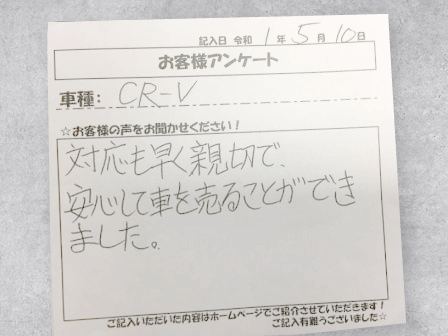 記入日 令和 1 年 5 月 10 日
お客様アンケート
車種: CR-V
☆お客様の声をお聞かせください!
対応も早く親切で、
安心して車を売ることができ
ました。
ご記入いただいた内容はホームページでご紹介させていただきます!
ご記入有難うございました☆